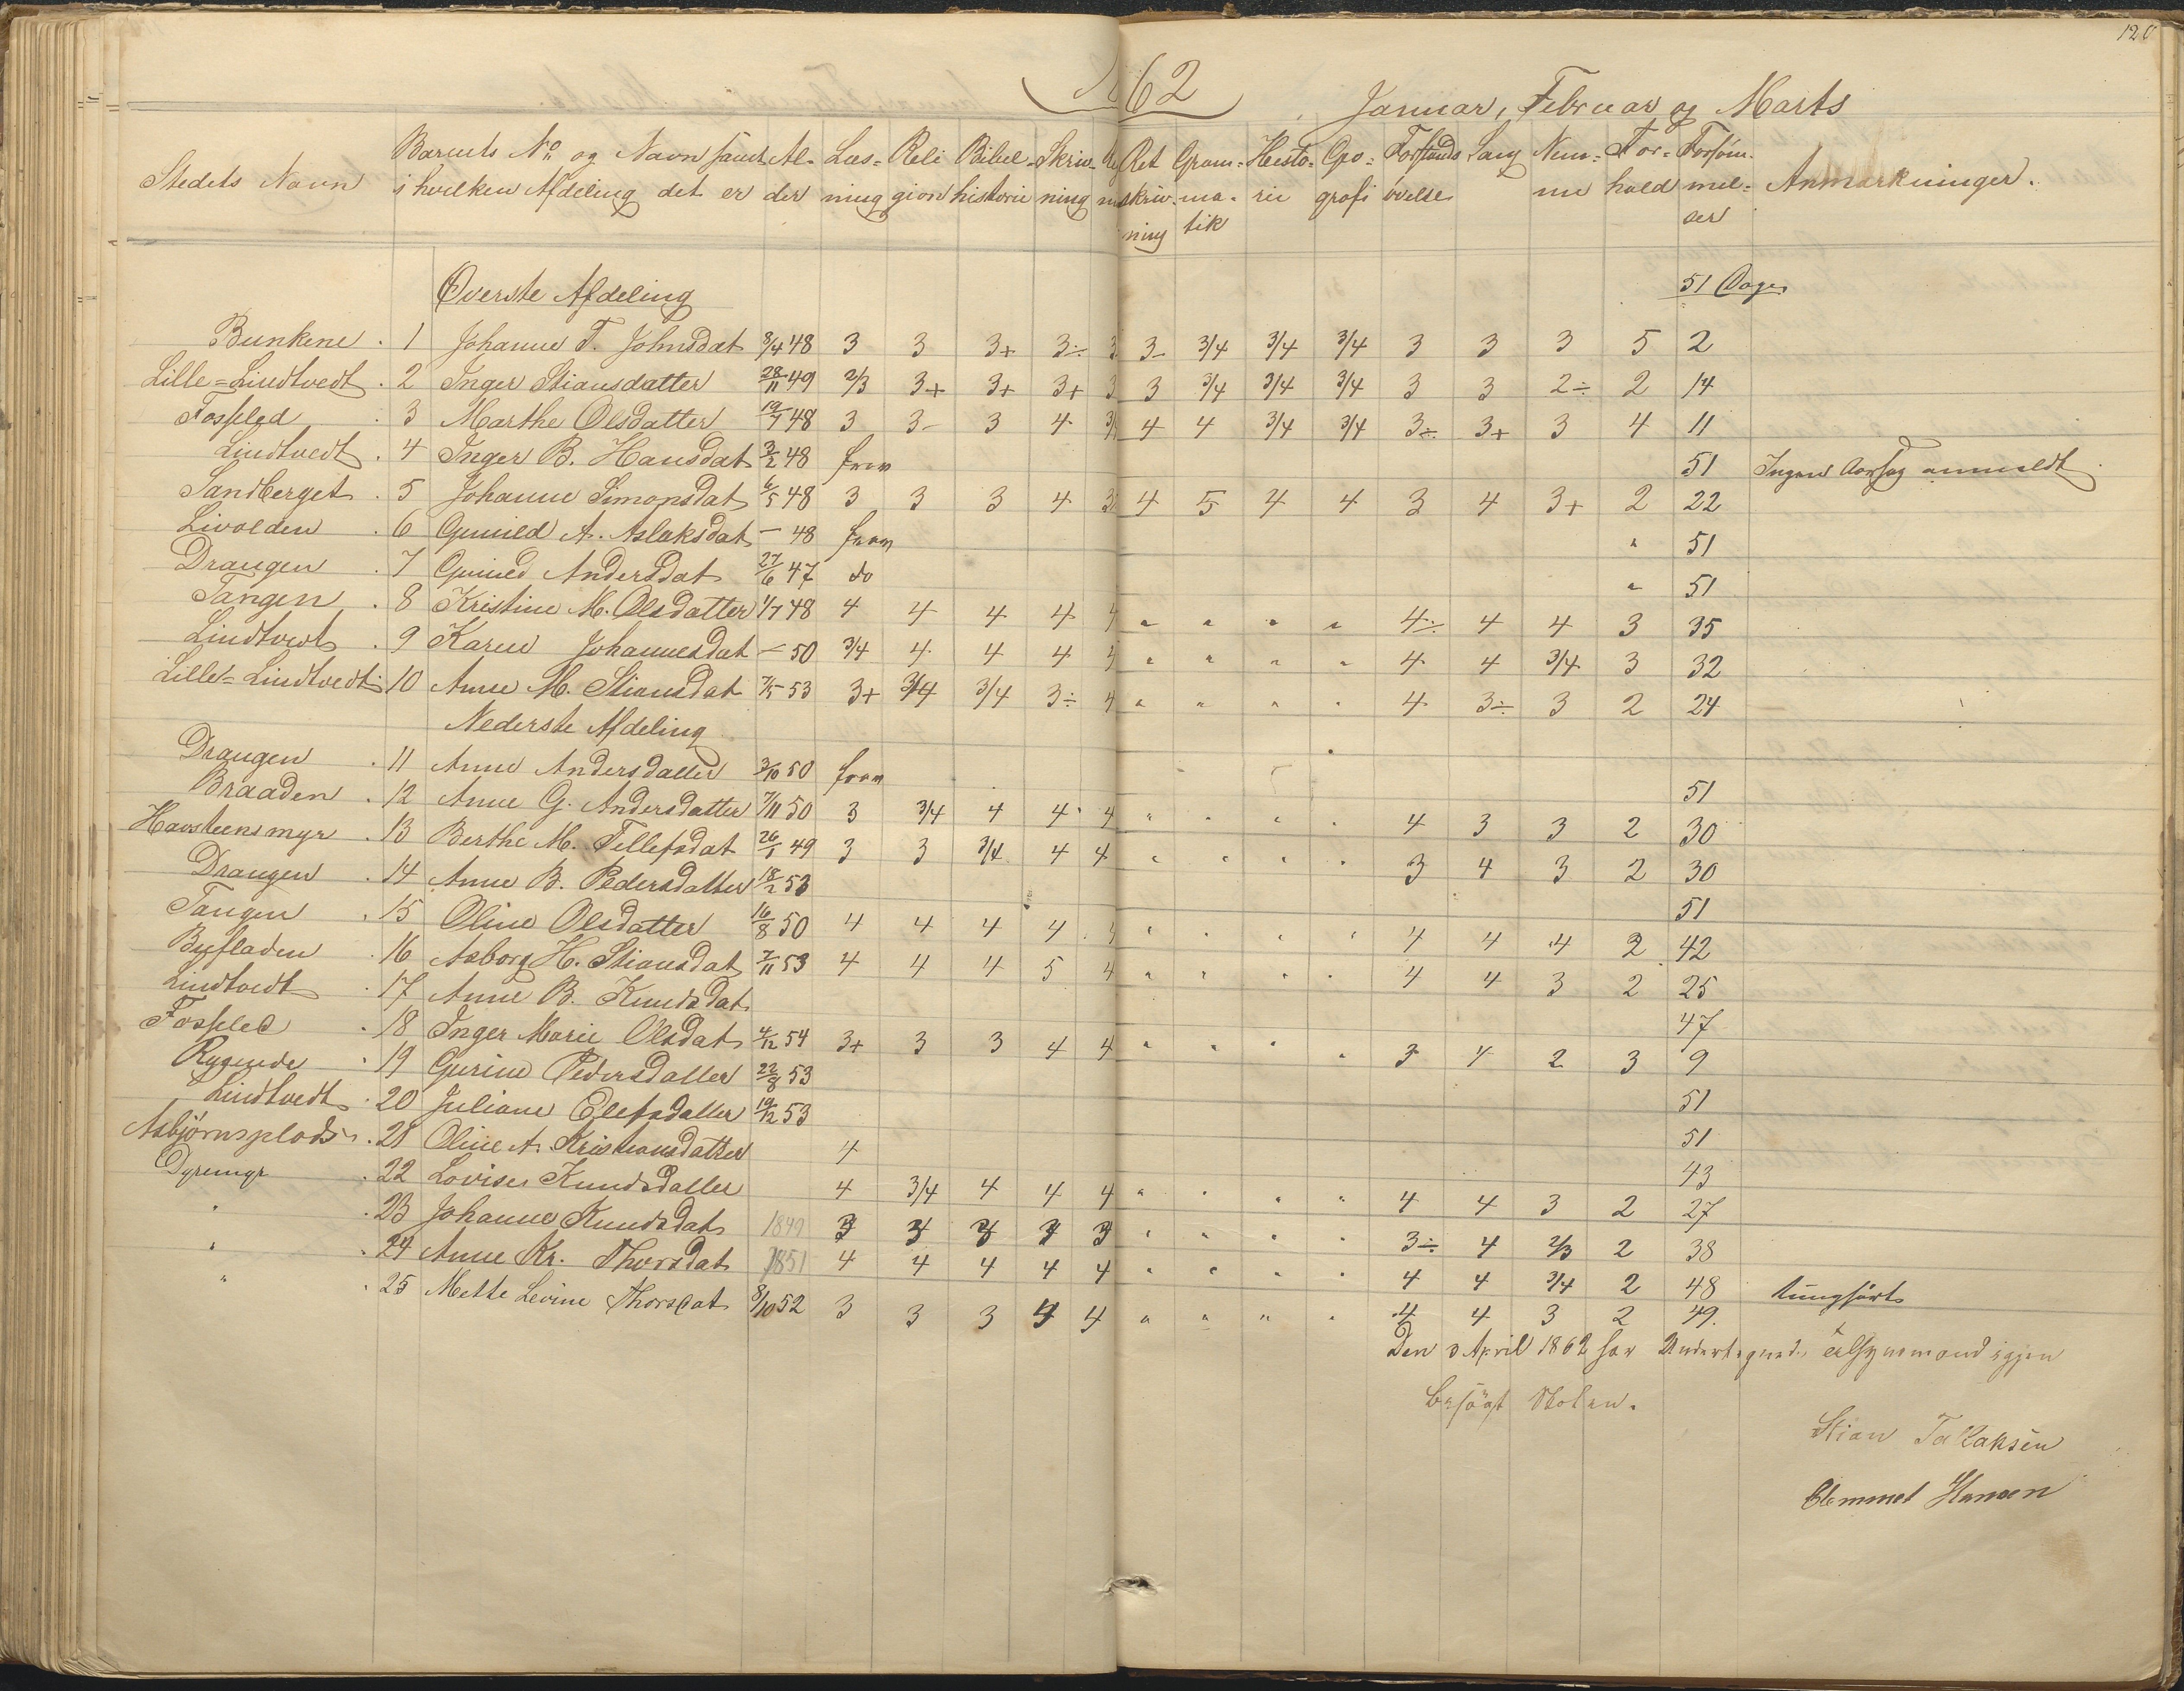 120
62
Januar, Februar og Marts
Stedets Navn | Barnets No og Navn samt i hvilken Afdeling det er | Al- der | Læs- ning | Reli gion | Bibel- historie | Skriv- ning | Ret skriv- ning | Gram- ma- tik | Histo- rie | Geo- grafi | Forstands øvelse | Sang | Nem- me | For- hold | Forsöm- mel- ser | Anmærkninger.
Øverste Afdeling 51 Dage
Bunkene . 1 Johanne T. Johnsdat 8/4 48 3 3 3+ 3÷ 3 3- 3/4 3/4 3/4 3 3 3 5 2
Lille=Lindtvedt . 2 Inger Stiansdatter 28/11 49 2/3 3+ 3+ 3+ 3 3 3/4 3/4 3/4 3 3 2÷ 2 14
Fossled . 3 Marthe Olsdatter 19/7 48 3 3- 3 4 3/4 4 4 3/4 3/4 3÷ 3+ 3 4 11
Lindtvedt . 4 Inger B. Hansdat 3/2 48 frav 51 Ingen Aarsag anmeldt
Sandberget . 5 Johanne Simonsdat 6/5 48 3 3 3 4 3 4 5 4 4 3 4 3+ 2 22
Livolden . 6 Gunild A. Aslaksdat - 48 frav " 51
Draugen . 7 Guned Andersdat 27/6 47 do " 51
Tangen . 8 Kristine M. Olsdatter 1/7 48 4 4 4 4 4 " " " " 4÷ 4 4 3 35
Lindtvedt . 9 Karen Johannesdat - 50 3/4 4 4 4 " " " " 4 4 3/4 3 32
Lille=Lindtvedt . 10 Anne M. Stiansdat 7/5 53 3+ 3/4 3/4 3÷ 4 " " " " 4 3÷ 3 2 24
Nederste Afdeling
Draugen . 11 Anne Andersdatter 3/10 50 frav 51
Braaden . 12 Anne G. Andersdatter 7/11 50 3 3/4 4 4 4 " " " " 4 3 3 2 30
Havsteensmyr . 13 Berthe M. Tellefsdat 26/1 49 3 3 3/4 4 4 " " " " 3 4 3 2 30
Draugen . 14 Anne B. Pedersdatter 18/2 53 51
Tangen . 15 Oline Olsdatter 16/8 50 4 4 4 4 " " " " 4 4 4 2 42
Byfladen . 16 Asborg H. Stiansdat 7/11 53 4 4 4 5 4 " " " " 4 4 3 2 25
Lindtvedt . 17 Anne B. Knudsdat 47
Fossled . 18 Inger Marie Olsdat 4/12 54 3+ 3 3 4 4 " " " " 3 4 2 3 9
Rygende . 19 Gurine Pedersdatter 22/8 53 51
Lindtvedt . 20 Juliane Elefsdatter 19/12 53 51
Asbjørnsplads . 21 Oline A. Kristiansdatter 4 43
Dyremyr . 22 Lovise Knudsdatter 4 3/4 4 4 4 " " " " 4 4 3 2 27
" . 23 Johanne Knudsdat 1849 3 3 3 3 3 " " " " 3÷ 4 2/3 2 38
" . 24 Anne Kr. Thorsdat 1851 4 4 4 4 4 " " " " 4 4 3/4 2 48 tunghørt
" . 25 Mette Levine Thorsdat 8/10 52 3 3 3 4 4 " " " " 4 4 3 2 49.
Den 3 April 1862 har Undertegnede Tilsynsmænd igjen
besögt Skolen.
Stian Talaksen
Clemmet Hansen